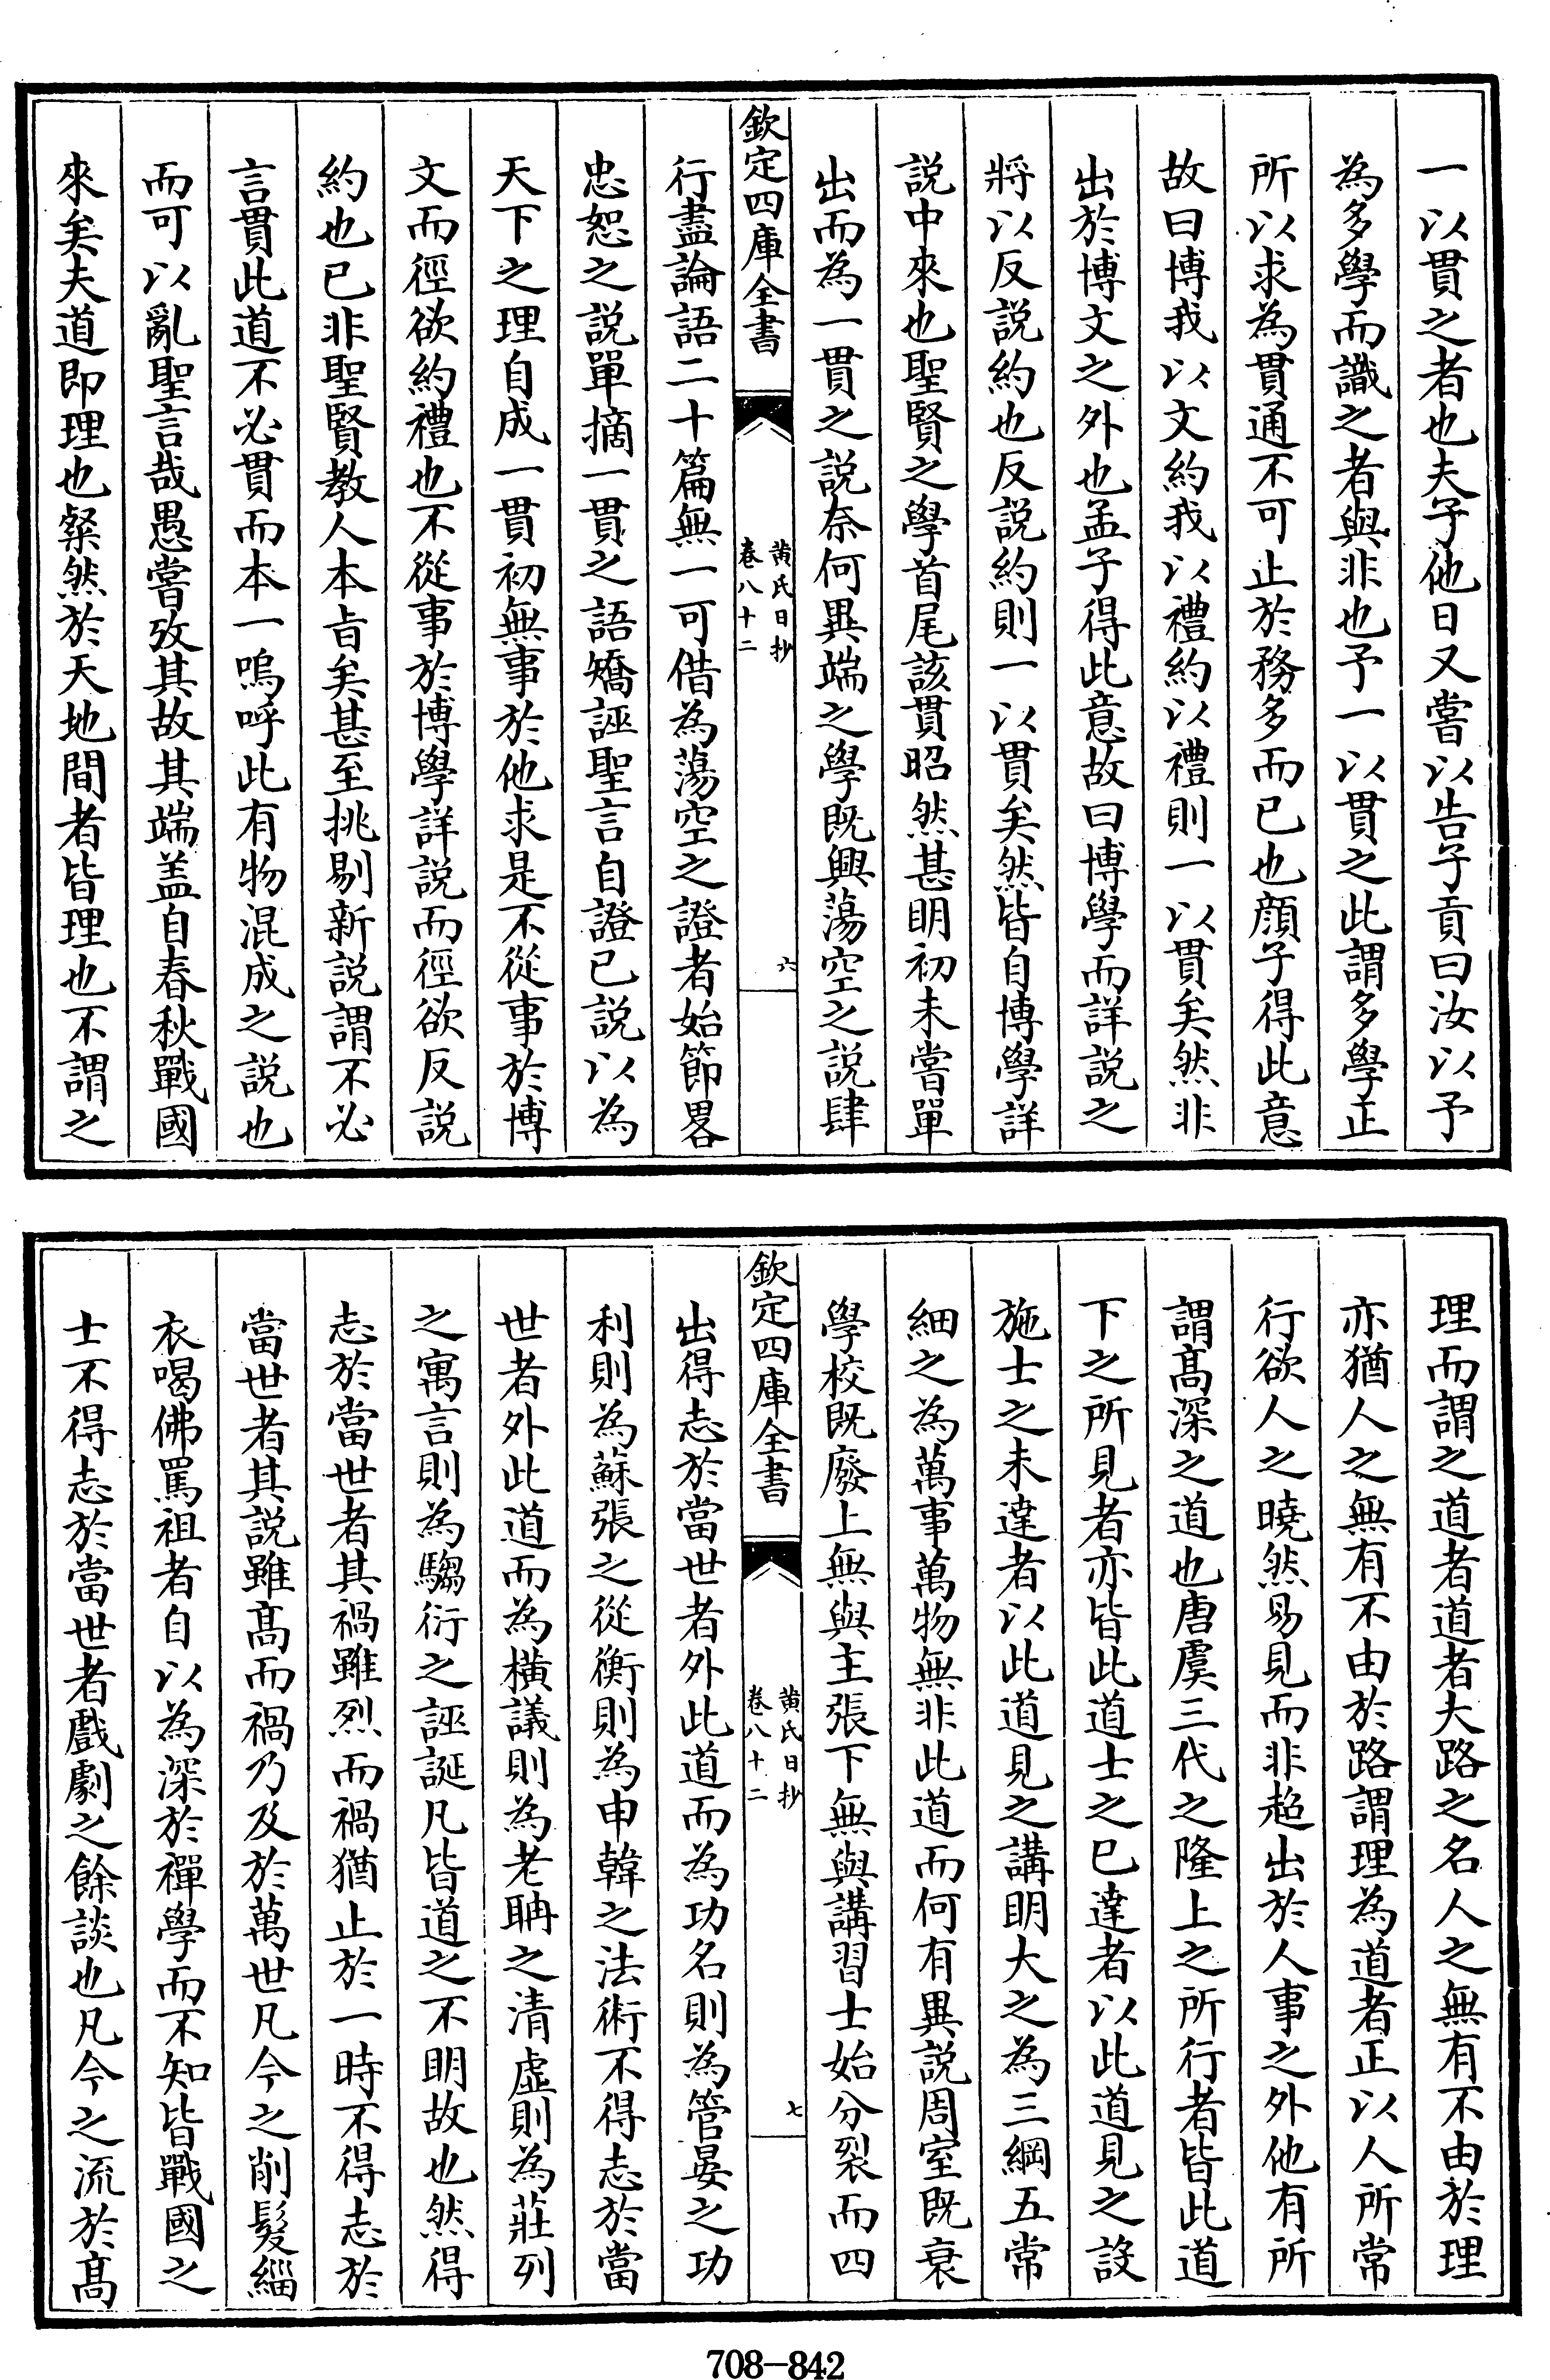 一以貫之者也夫子他日又嘗以告子貢曰汝以予
為多學而識之者與非也予一以貫之此謂多學正
所以求為貫通不可止於務多而已也顔子得此意
故曰博我以文約我以禮約以禮則一以貫矣然非
出於博文之外也孟子得此意故曰博學而詳説之
將以反説約也反説約則一以貫矣然皆自博學詳
説中來也聖賢之學首尾該貫昭然甚明初未嘗單
出而為一貫之説奈何異端之學既興蕩空之説肆
欽定四庫全書
黄氏日抄
卷八十二
六
行盡論語二十篇無一可借為蕩空之證者始節畧
忠恕之説單摘一貫之語矯誣聖言自證已説以為
天下之理自成一貫初無事於他求是不從事於博
文而徑欲約禮也不從事於博學詳説而徑欲反説
約也已非聖賢教人本㫖矣甚至挑剔新説謂不必
言貫此道不必貫而本一嗚呼此有物混成之説也
而可以亂聖言哉愚嘗攷其故其端盖自春秋戰國
來矣夫道即理也粲然於天地間者皆理也不謂之
理而謂之道者道者大路之名人之無有不由於理
亦猶人之無有不由於路謂理為道者正以人所常
行欲人之曉然易見而非超出於人事之外他有所
謂髙深之道也唐虞三代之隆上之所行者皆此道
下之所見者亦皆此道士之已達者以此道見之設
施士之未達者以此道見之講明大之為三綱五常
細之為萬事萬物無非此道而何有異説周室既衰
學校既廢上無與主張下無與講習士始分裂而四
欽定四庫全書
黄氏日抄
卷八十二
七
出得志於當世者外此道而為功名則為管晏之功
利則為蘇張之從衡則為申韓之法術不得志於當
世者外此道而為横議則為老聃之清虚則為莊列
之寓言則為騶衍之誣誕凡皆道之不明故也然得
志於當世者其禍雖烈而禍猶止於一時不得志於
當世者其説雖髙而禍乃及於萬世凡今之削髮緇
衣喝佛罵祖者自以為深於禪學而不知皆戰國之
士不得志於當世者戲劇之餘談也凡今之流於髙
708-842